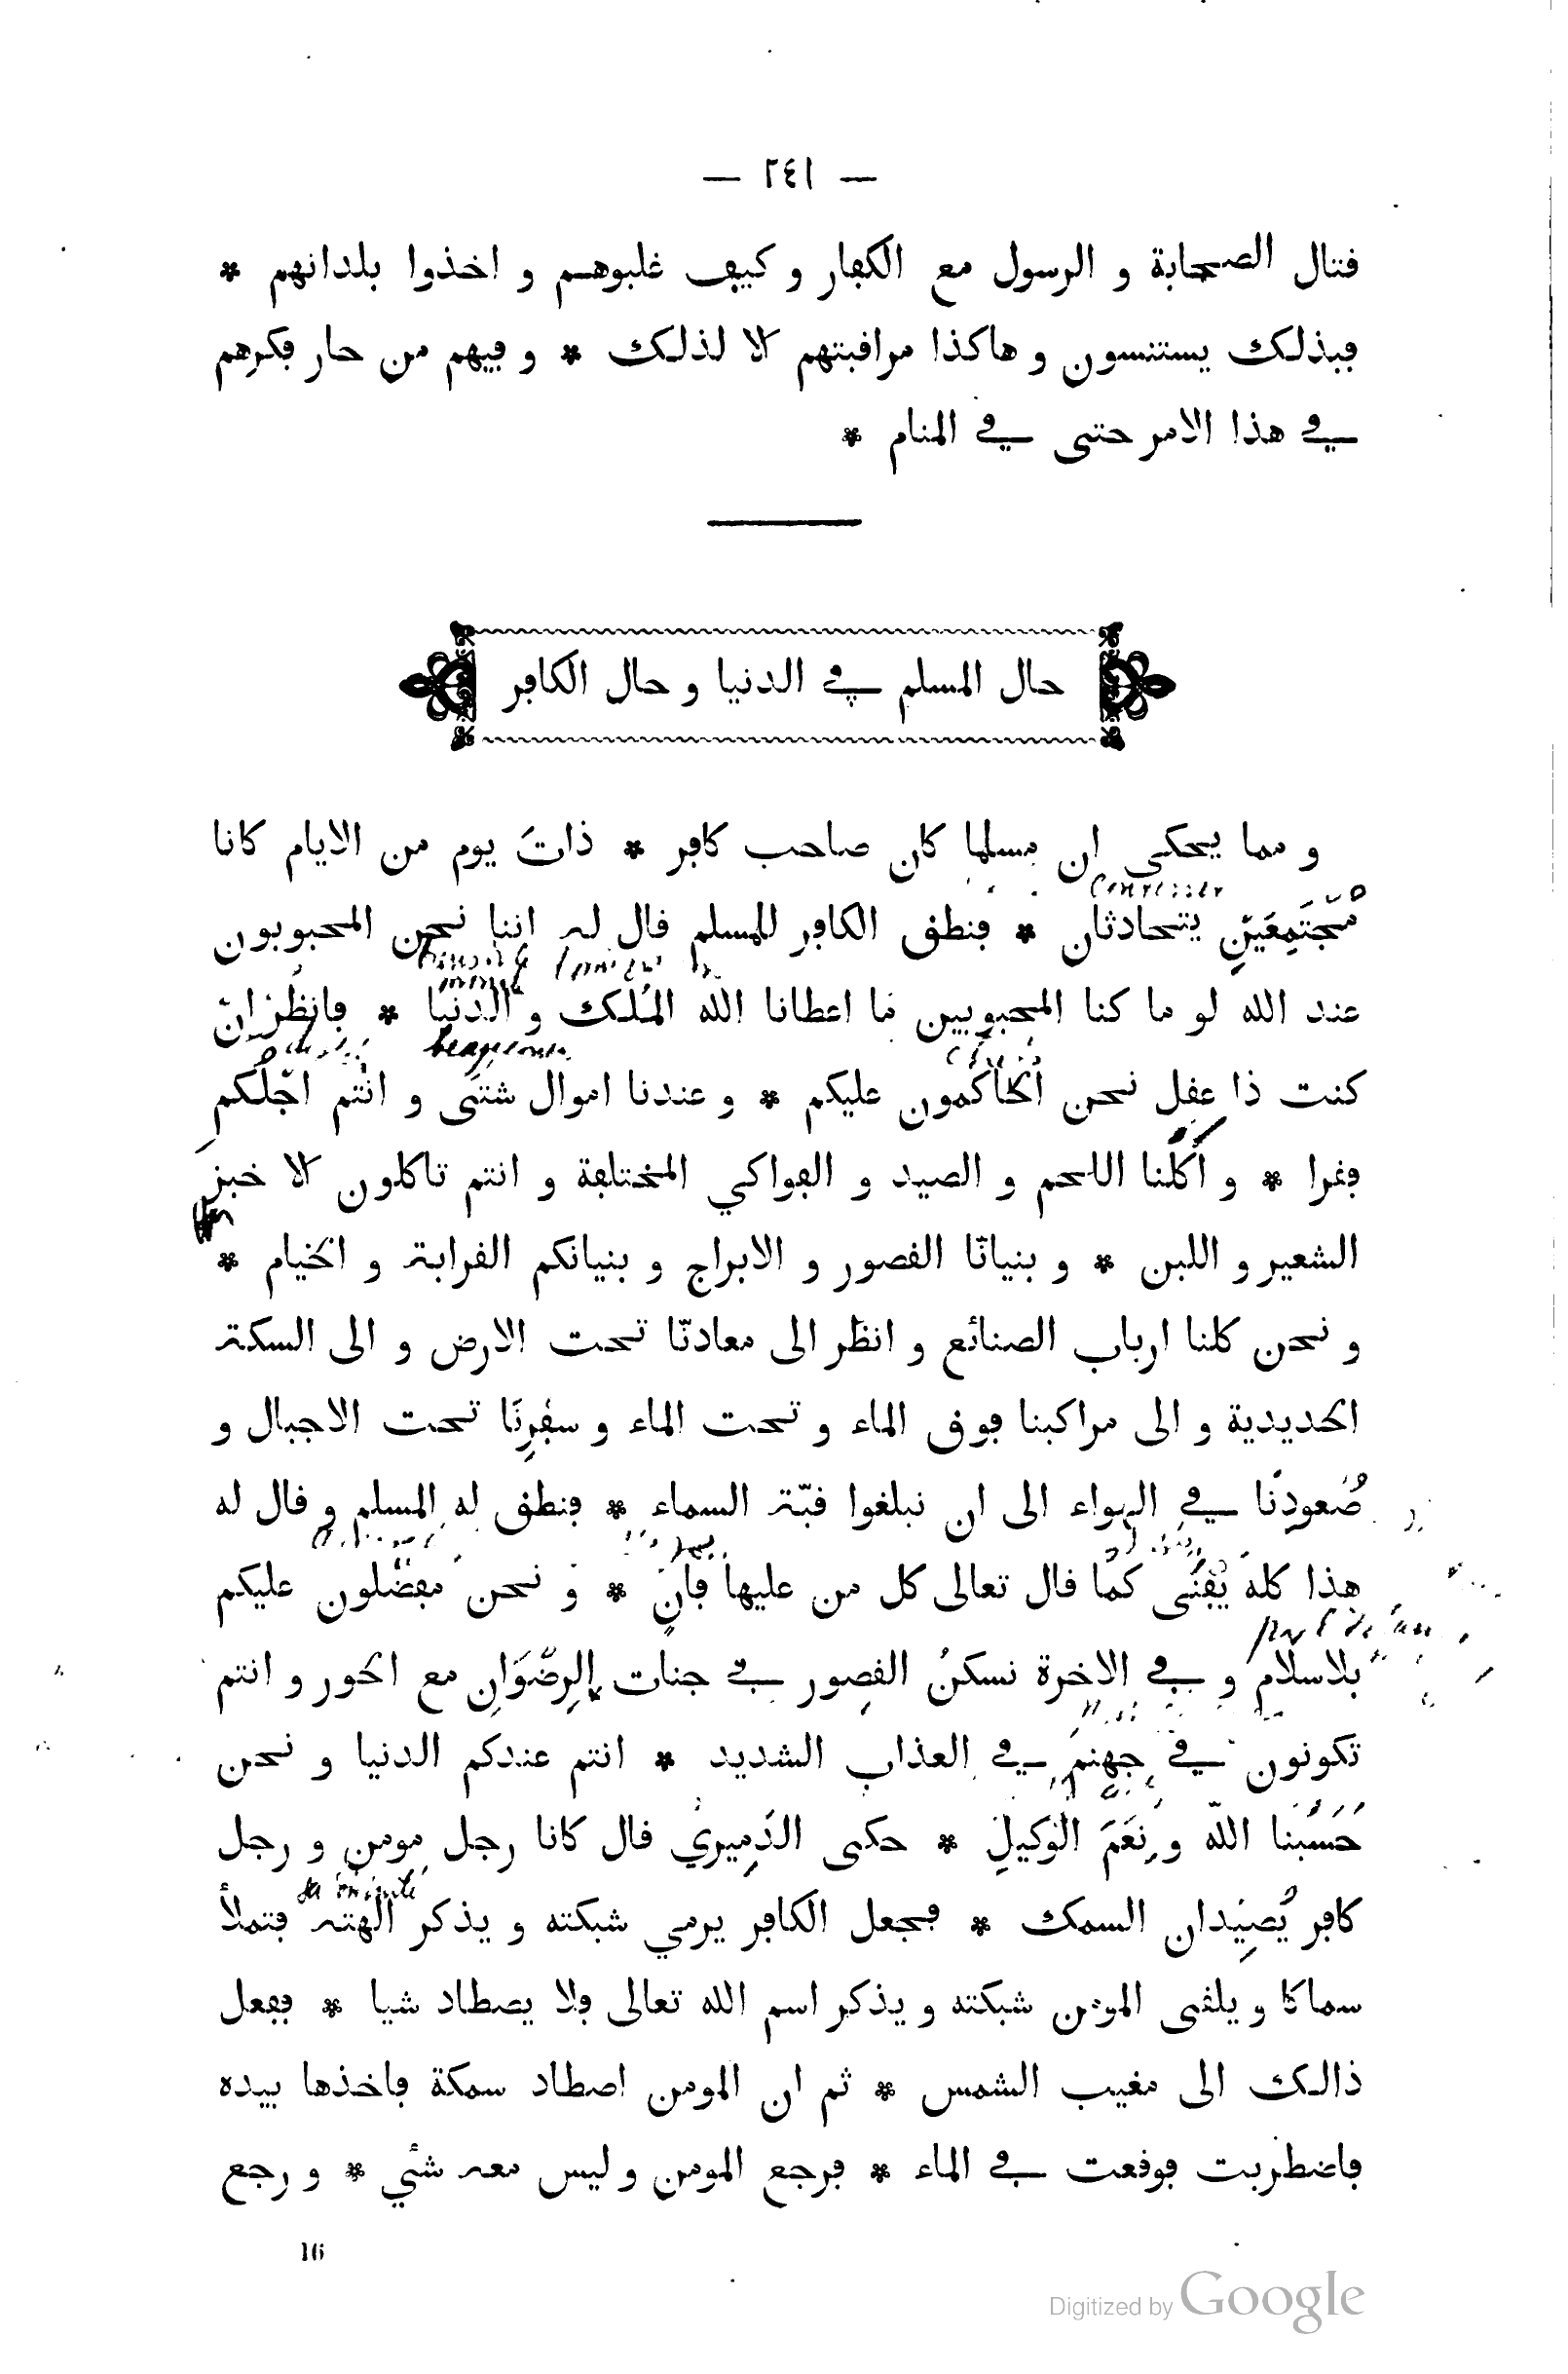 — ٢٤١ —
قتال الصحابة و الرسول مع الكفار و كيف غلبوهم و اخذوا بلدانهم *
فبذلك يستنسون و هاكذا مراقبتهم الا لذلك * و فيهم من حار فكرهم
في هذا الامر حتى في المنام *
حال المسلم في الدنيا و حال الكافر
و مما يحكى ان مسلما كان صاحب كافر * ذاتَ يوم من الايام كانا
مُجْتَمِعَيْنِ يتحادثان * فنطق الكافر للمسلم قال له اننا نحن المحبوبون
عند الله لو ما كنا المحبوبين ما اعطانا الله المُلك و الدنيا * فانظُر ان
beaucoup
كنت ذا عقل نحن الحاكمون عليكم * و عندنا اموال شتى و انتم اجُلّكم
فقرا * و اكلنا اللحم و الصيد و الفواكي المختلفة و انتم تاكلون الا خبز
الشعير و اللبن * و بنياننا القصور و الابراج و بنيانكم القرابة و الخيام *
و نحن كلنا ارباب الصنائع و انظر الى معادننا تحت الارض و الى السكة
الحديدية و الى مراكبنا فوق الماء و تحت الماء و سفرِنَا تحت الاجبال و
صُعودِنَا في الهواء الى ان نبلغوا قبّة السماء * فنطق له المسلم و قال له
هذا كله يَفْنَى كما قال تعالى كل من عليها فانٍ * و نحن مفضّلون عليكم
بلاسلام و في الاخرة نسكنُ القصور في جنات الرِضْوَانِ مع الحور و انتم
تكونون في جهنمَ في العذاب الشديد * انتم عندكم الدنيا و نحن
حَسْبُنا اللّه و نِعَمَ الْوَكيلِ * حكى الدَمِيريْ قال كانا رجل مومن و رجل
sa divinité
كافر يُصيَدان السمك * فجعل الكافر يرمي شبكته و يذكر الهته فتملأ
سماكا و يلقى المومن شبكته و يذكر اسم الله تعالى فلا يصطاد شيا * ففعل
ذالك الى مغيب الشمس * ثم ان المومن اصطاد سمكة فاخذها بيده
فاضطربت فوقعت في الماء * فرجع المومن و ليس معه شئي * و رجع
16
Digitized by Google